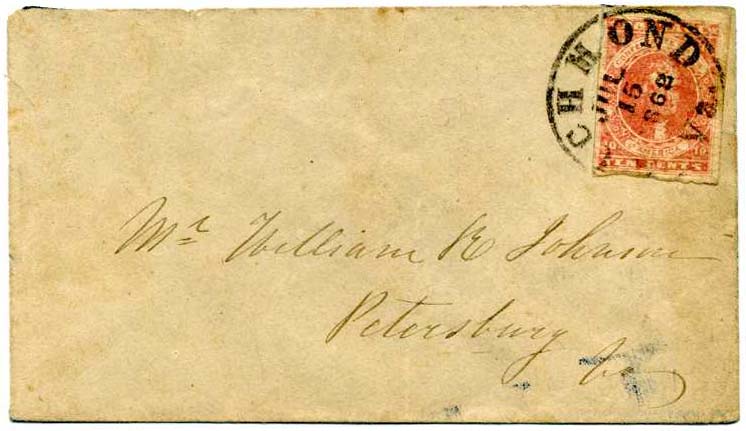 CHMOND Va.
JUL
15
1863
AMERICA
10 10
TEN CENTS
Mr William R Johnson
Petersburg
Va